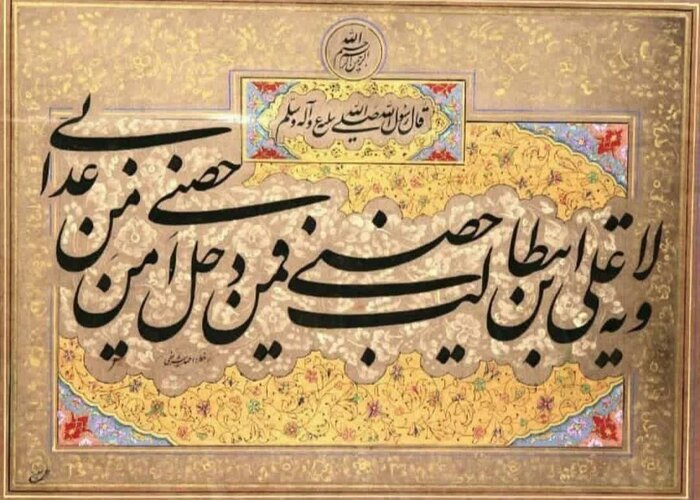 بسم الله الرحمن الرحیم
قال رسول الله صلی الله علیه وآله وسلم
ولایة علی بن ابیطالب حصنی فمن دخل حصنی امن من عذابی